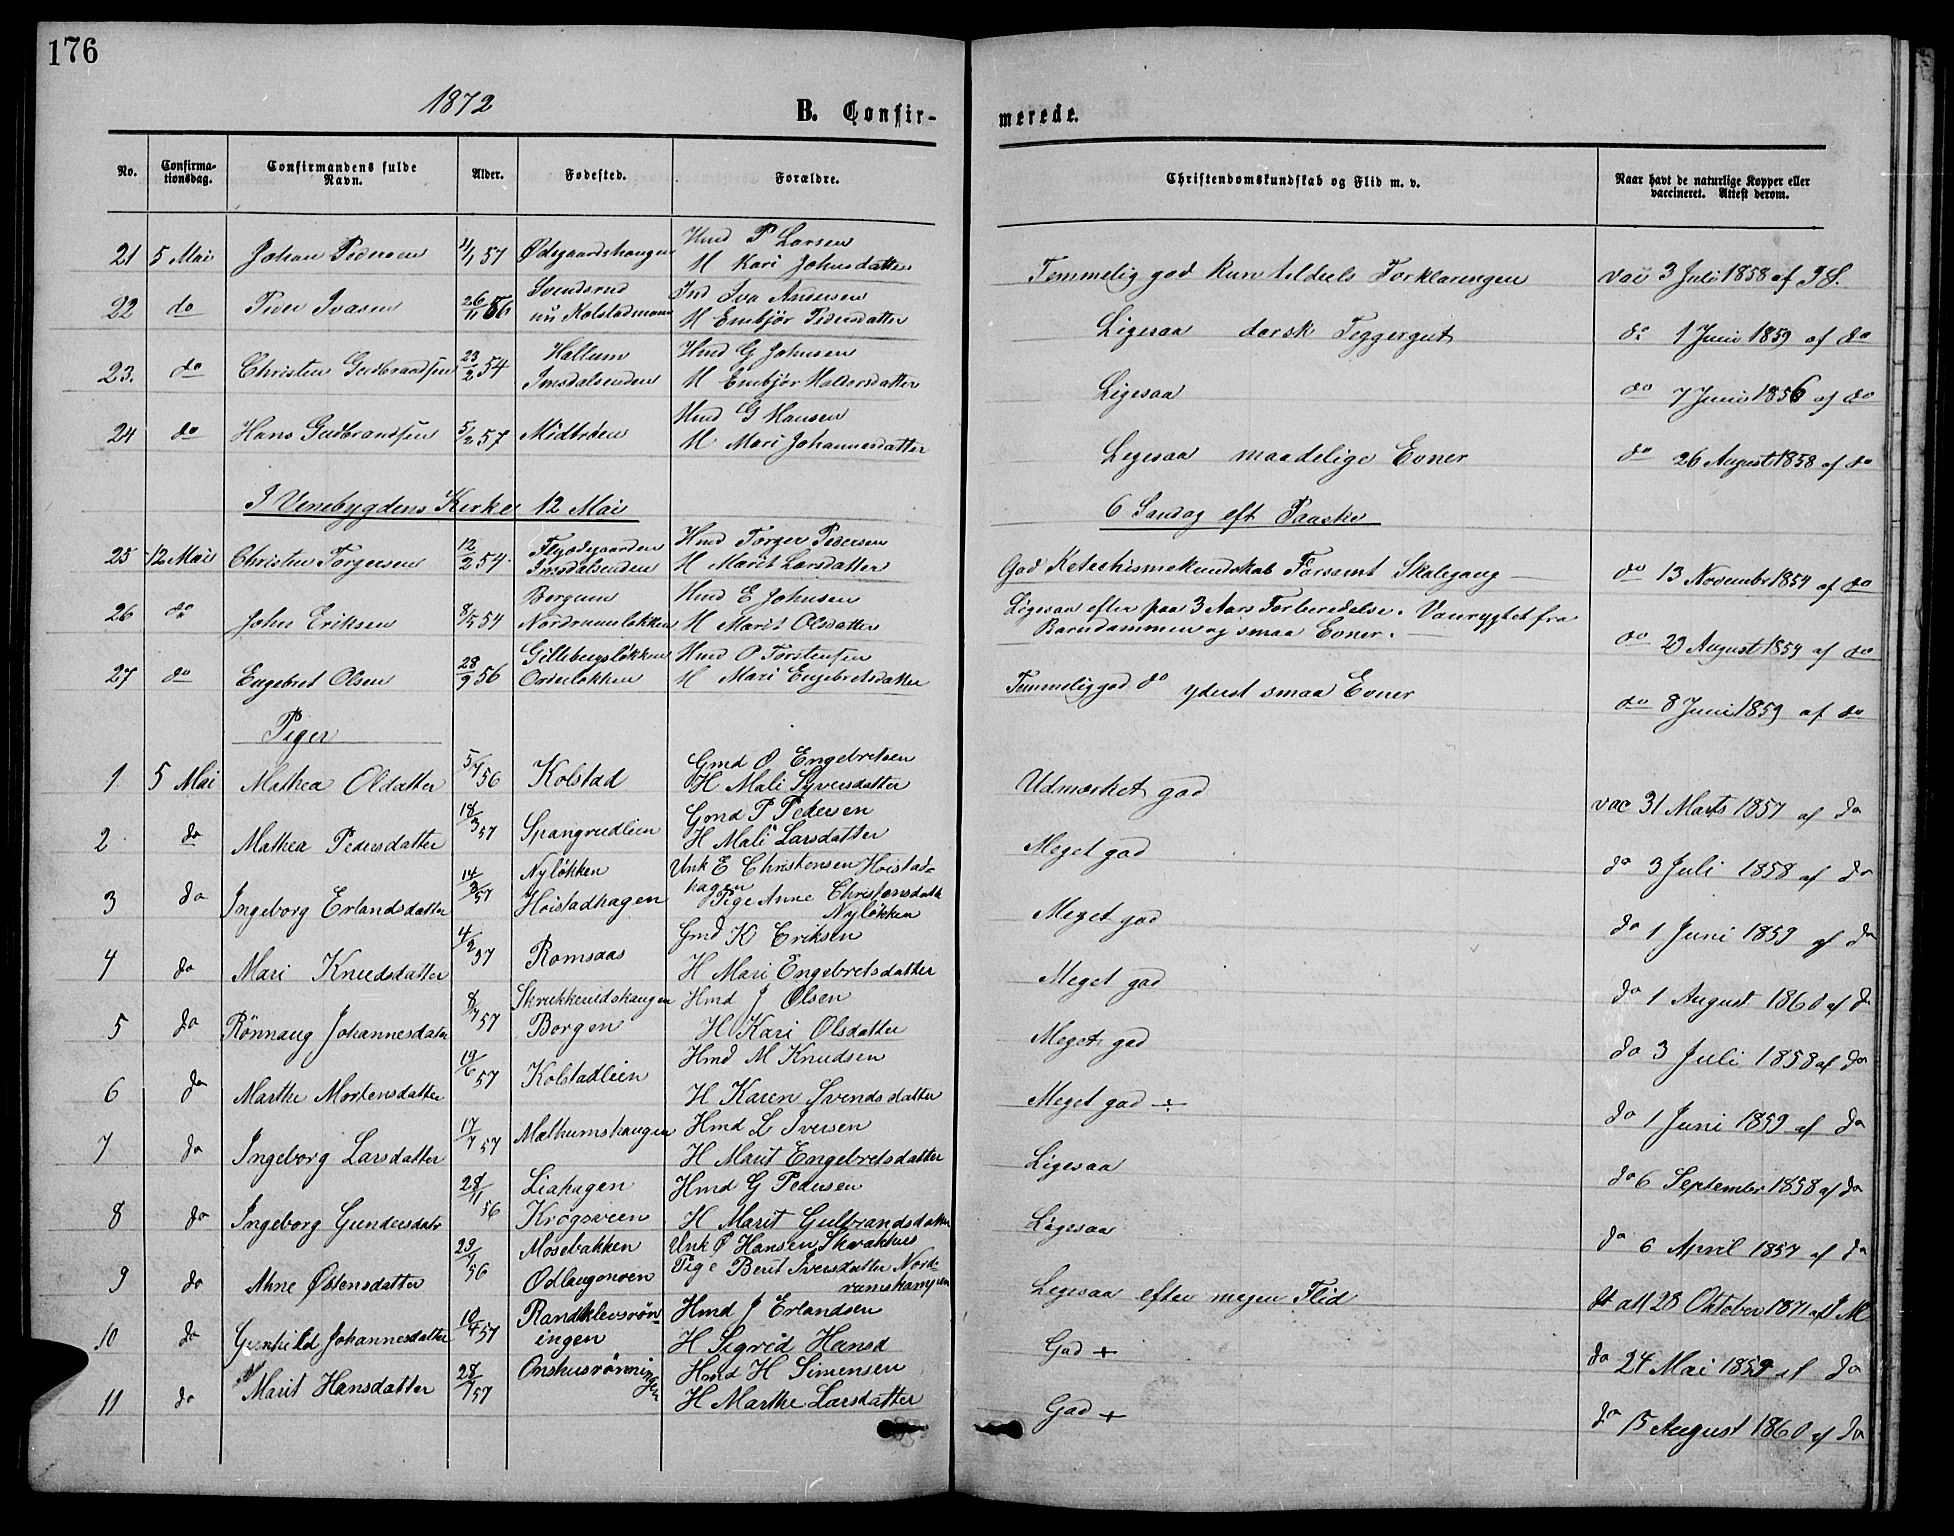 176
1872
B. Confir-
merede.
No.
Confirma-
tionsdag.
Confirmandens fulde
Navn.
Alder.
Fødested.
Forældre.
Christendomskundskab og Flid m. v.
Naar havt de naturlige Kopper eller
vaccineret. Attest derom.
21 5 Mai Johan Pedersen 4/1 57 Ødegaardshaugen Hmd P Larsen
H Kari Johnsdatter
Temmelig god kun tildeels Forklaringen vac 3 Juli 1858 af
22 do Iversen 26/11 56 Svendsrud Ind Iva Andersen
nu Kolstadmoen H Embjør Pedersdatter
Ligesaa dorsk Teggergut do 1 Juni 1859 af do
23. do Christen Gudbrandsen 23/2 54 Hallum Hmd G Johnsen
Imsdalsenden H Embjør Haldorsdatter
Ligesaa do 7 Juni 1856 af do
24 do Hans Gudbrandsen 5/2 57 Midtröen Hmd G Hansen
H Mari Johannesdatter
Ligesaa maadelige Evner do 26 August 1858 af do
I Venebygdens Kirke 12 Mai
6 Søndag eft Paaske
25 12 Mai Christen Torgersen 12/2 54 Flyødegaarden Hmd Torger Pedersen
Imsdalsenden H Marit Larsdatter
God Katechismekundskab Forsømt Skolegang — do 13 November 1854 af do
26 do John Eriksen 8/5 54 Borgum Hmd E Johnsen
Nordrumsløkken H Marit Olsdatter
Ligesaa efter paa 3 Aars Forberedelse. Vanrygtet fra
Barndommen og smaa Evner. — do 29 August 1854 af do
27 do Engebret Olsen 28/9 56 Gillebergsløkken Hmd O Torstensen
Ovrenløkken H Mari Engebretsdatter
Temmelig god do yderst smaa Evner do 8 Juni 1859 af do
Piger
1. 5 Mai Mathea Olsdatter 5/7 56 Kolstad Gmd O Engebretsen
H Mali Syversdatter
Udmærket god vac 31 Marts 1857 af do
2 do Mathea Pedersdatter 18/3 57 Spangrudlien Gmd P Pedersen
H Mali Larsdatter
Meget god do 3 Juli 1858 af do
3 do Ingeborg Erlandsdatter 14/3 57 Nyløkken Unk E Christensen Hoistad-
Hoistadhagen hagen Pige Anne Christensdatt
Nyløkken
Meget god do 1 Juni 1859 af do
4 do Mari Knudsdatter 4/2 57 Romsaas Gmd K Eriksen
H Mari Engebretsdatter
Meget god do 1 August 1860 af d
5 do Rönnaug Johannesdatter 8/7 57 Skrukkerudshaugen Hmd J Olsen
Borgen H Kari Olsdatter
Meget god do 3 Juli 1858 af do
6 do Marthe Mortensdatter 19/6 57 Kolstadlien Hmd M Knudsen
H Karen Svendsdatter
Meget god ÷ do 1 Juni 1859 af do
7 do Ingeborg Larsdatter 17/7 57 Mælhumshaugen Hmd L Iversen
H Marit Engebretsdatter
Ligesaa do 6 September 1858 af do
8 do Ingeborg Gundersdatr 28/11 56 Liahagen Hmd G Pedersen
Krogsveen H Marit Gulbrandsdatter
Ligesaa do 6 April 1857 af do
9 do Ahne Østensdatter 29/9 56 Mosebakken Unk Ø Hansen Skrakhus
Odlaugmoen Pige Berit Iversdatter Nord-
rumskampen
Ligesaa efter megen Flid att 28 Oktober 1871 af J M
10 do Gunhild Johannesdatter 10/4 57 Randklevsrön- Hmd J Erlandsen
ingen H Sigrid Hansd
God + do 24 Mai 1859 af do
11 do Marit Hansdatter 28/7 57 Onshusrönningen Hmd H Simensen
H Marthe Larsdatter
God + do 15 August 1860 af do